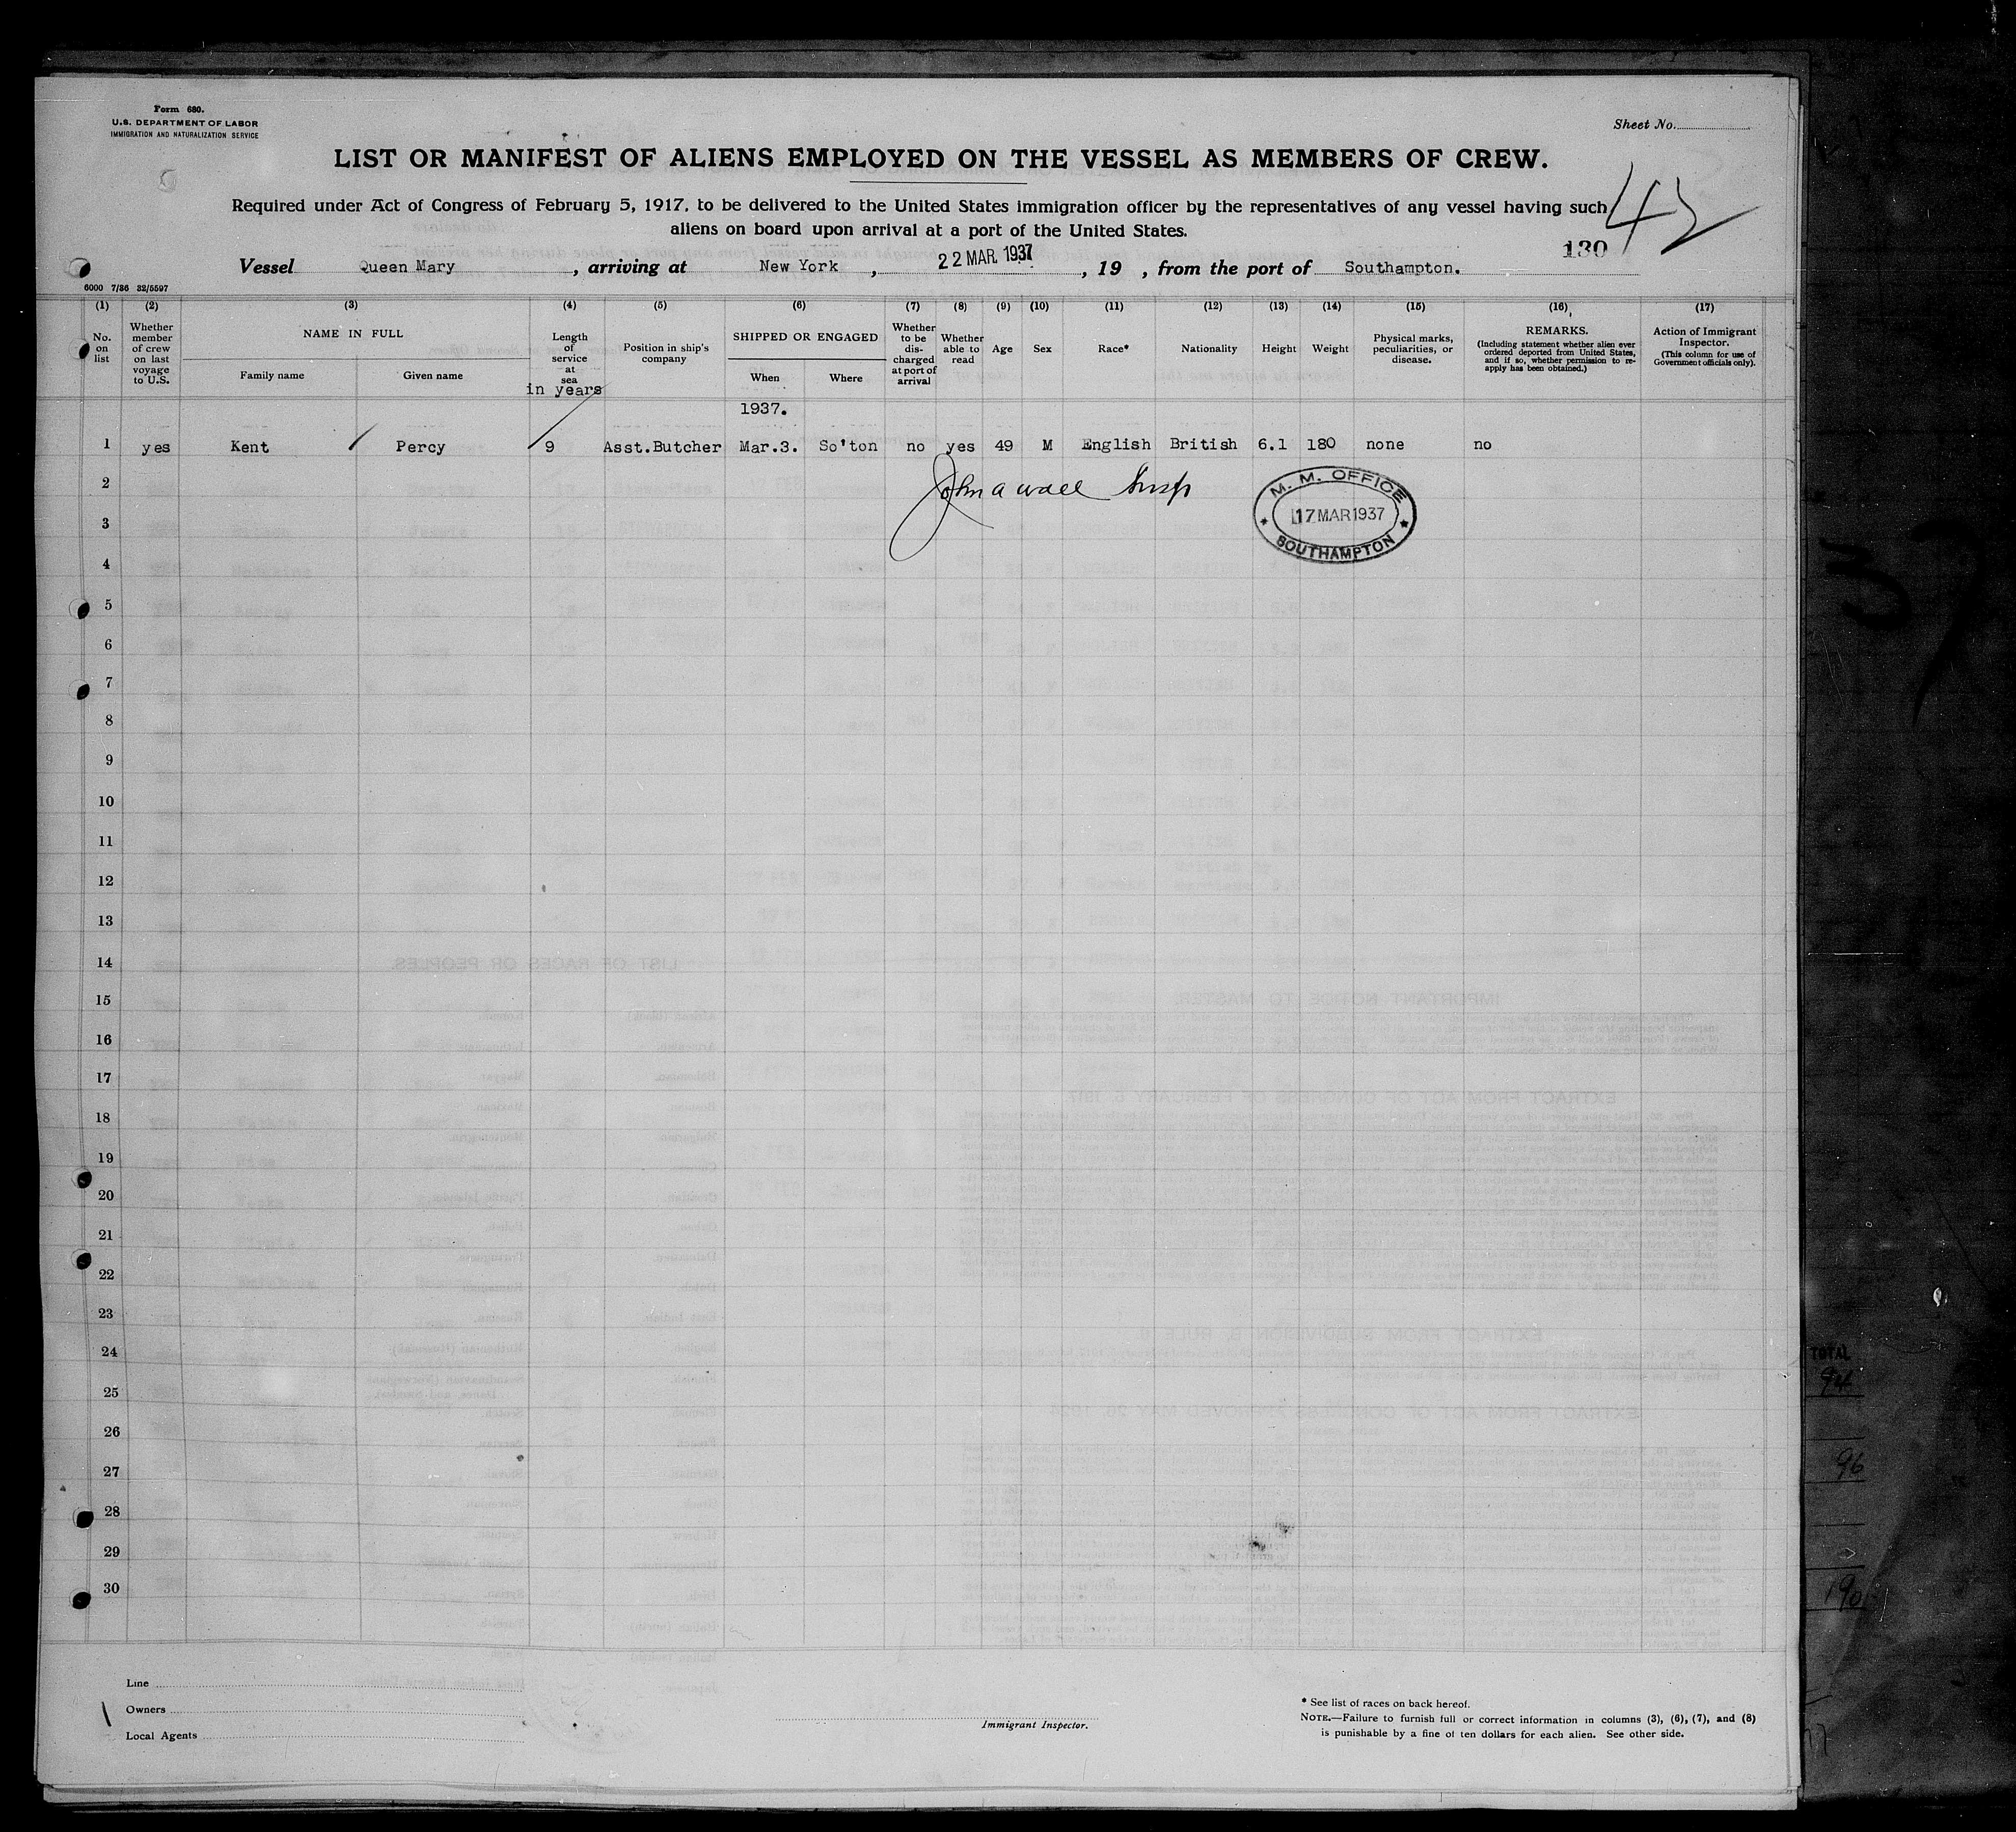 Form 680.
U.S. DEPARTMENT OF LABOR
IMMIGRATION AND NATURALIZATION SERVICE
Sheet No.
LIST OR MANIFEST OF ALIENS EMPLOYED ON THE VESSEL AS MEMBERS OF CREW.
Required under Act of Congress of February 5, 1917, to be delivered to the United States immigration officer by the representatives of any vessel having such
aliens on board upon arrival at a port of the United States.
42
130
Vessel Queen Mary, arriving at New York, 22 MAR. 1937, 19 , from the port of Southampton.
6000 7/36 32/5597
(1) (2) (3) (4) (5) (6) (7) (8) (9) (10) (11) (12) (13) (14) (15) (16) (17)
No. on list
Whether member of crew on last voyage to U.S.
NAME IN FULL
Family name
Given name
Length of service at sea
in years
Position in ship's company
SHIPPED OR ENGAGED
When
Where
Whether to be discharged at port of arrival
Whether able to read
Age
Sex
Race*
Nationality
Height
Weight
Physical marks, peculiarities, or disease.
REMARKS.
(Including statement whether alien ever ordered deported from United States, and if so, whether permission to reapply has been obtained.)
Action of Immigrant Inspector.
(This column for use of Government officials only).
1937.
1 yes Kent Percy 9 Asst.Butcher Mar.3. So'ton no yes 49 M English British 6.1 180 none no
John a wall Insp
M. M. OFFICE
17 MAR 1937
SOUTHAMPTON
2
3
4
5
6
7
8
9
10
11
12
13
14
15
16
17
18
19
20
21
22
23
24
25
26
27
28
29
30
Line
Owners
Local Agents
Immigrant Inspector.
* See list of races on back hereof.
NOTE.—Failure to furnish full or correct information in columns (3), (6), (7), and (8)
is punishable by a fine of ten dollars for each alien. See other side.
37
TOTAL
94
96
190